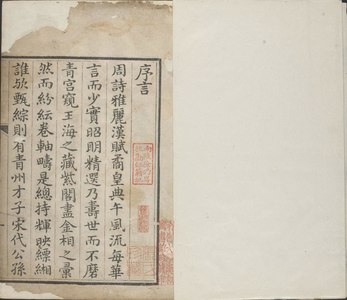 序言
周詩雅麗漢賦矞皇典午風流每華
言而少實昭明精選乃壽世而不磨
青宮窺玉海之藏紫閣盡金相之彙
然而紛紜卷軸疇是總持輝映縹緗
誰歟甄綜則有青州才子宋代公孫